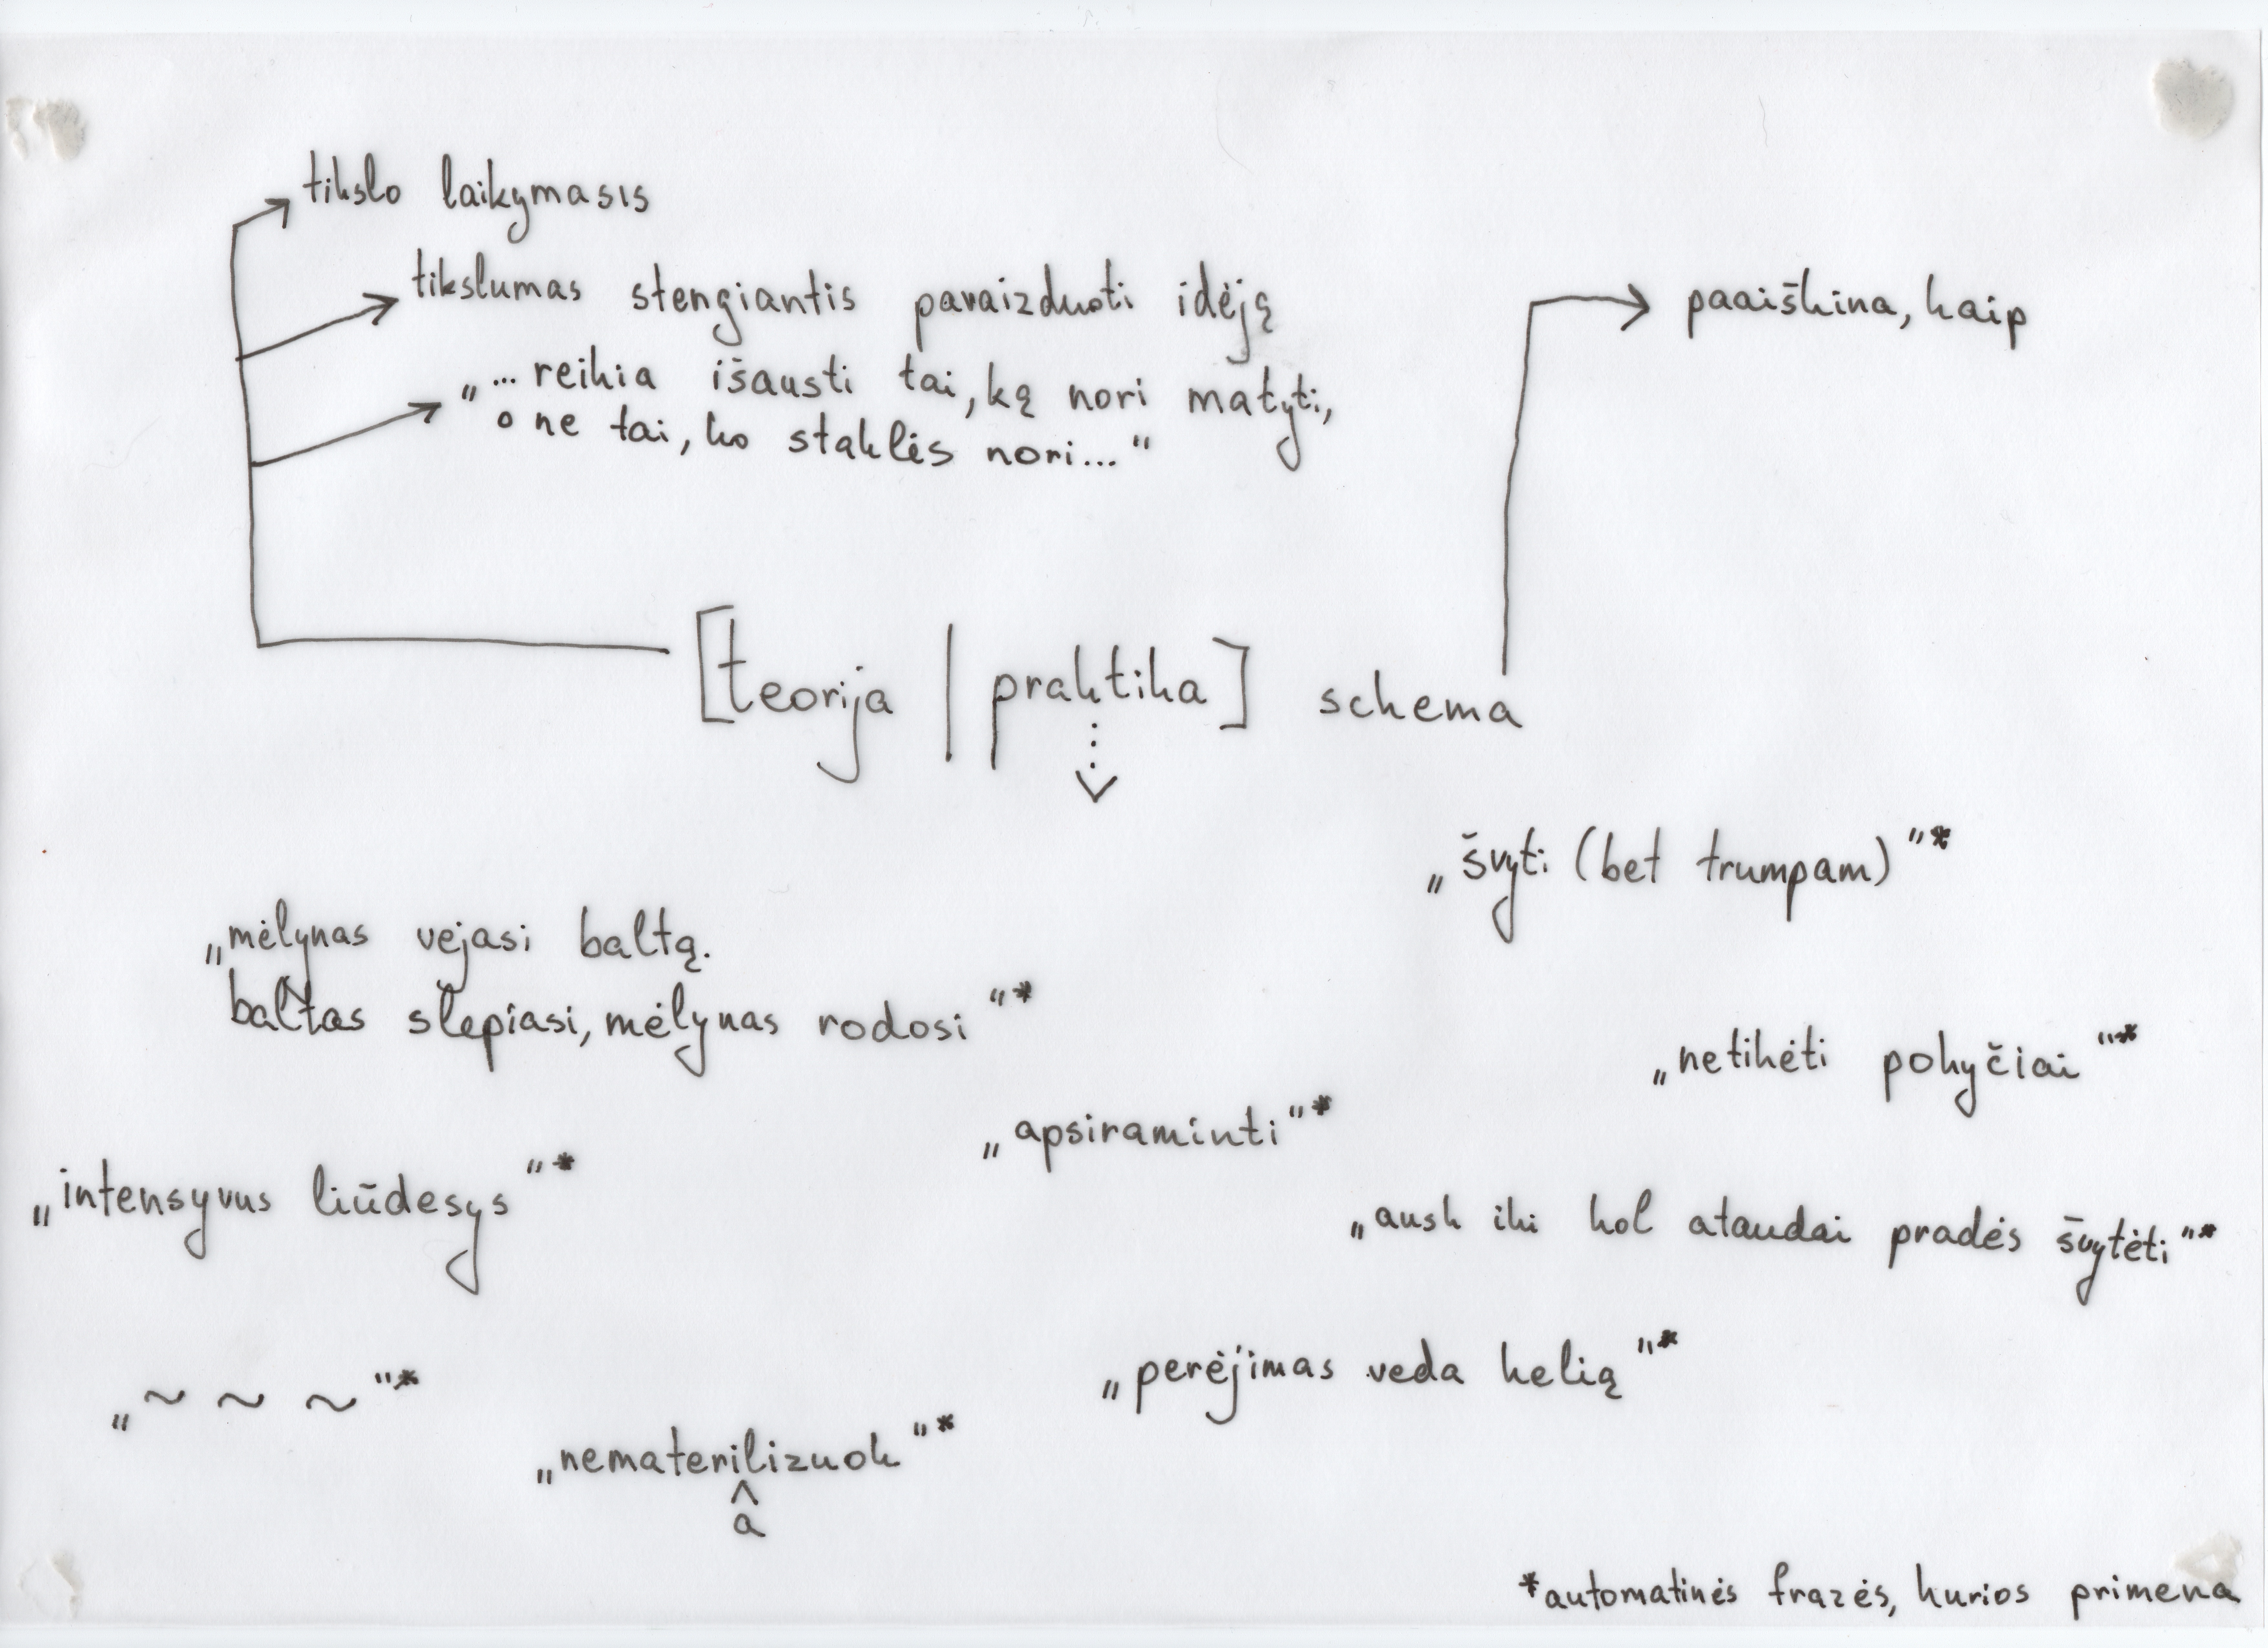 tikslo laikymasis
tikslumas stengiantis pavaizduoti idėją
„...reikia išausti tai, ką nori matyti,
o ne tai, ko staklės nori...“
paaiškina, kaip
[teorija | praktika] schema
„švyti (bet trumpam)“*
„mėlynas vejasi baltą.
baltas slepiasi, mėlynas rodosi“*
„netikėti pokyčiai“*
„apsiraminti“*
„intensyvus liūdesys“*
„ausk iki kol ataudai pradės švytėti“*
„perėjimas veda kelią“*
„~ ~ ~“*
„nematerilizuok“*
a
*automatinės frazės, kurios primena